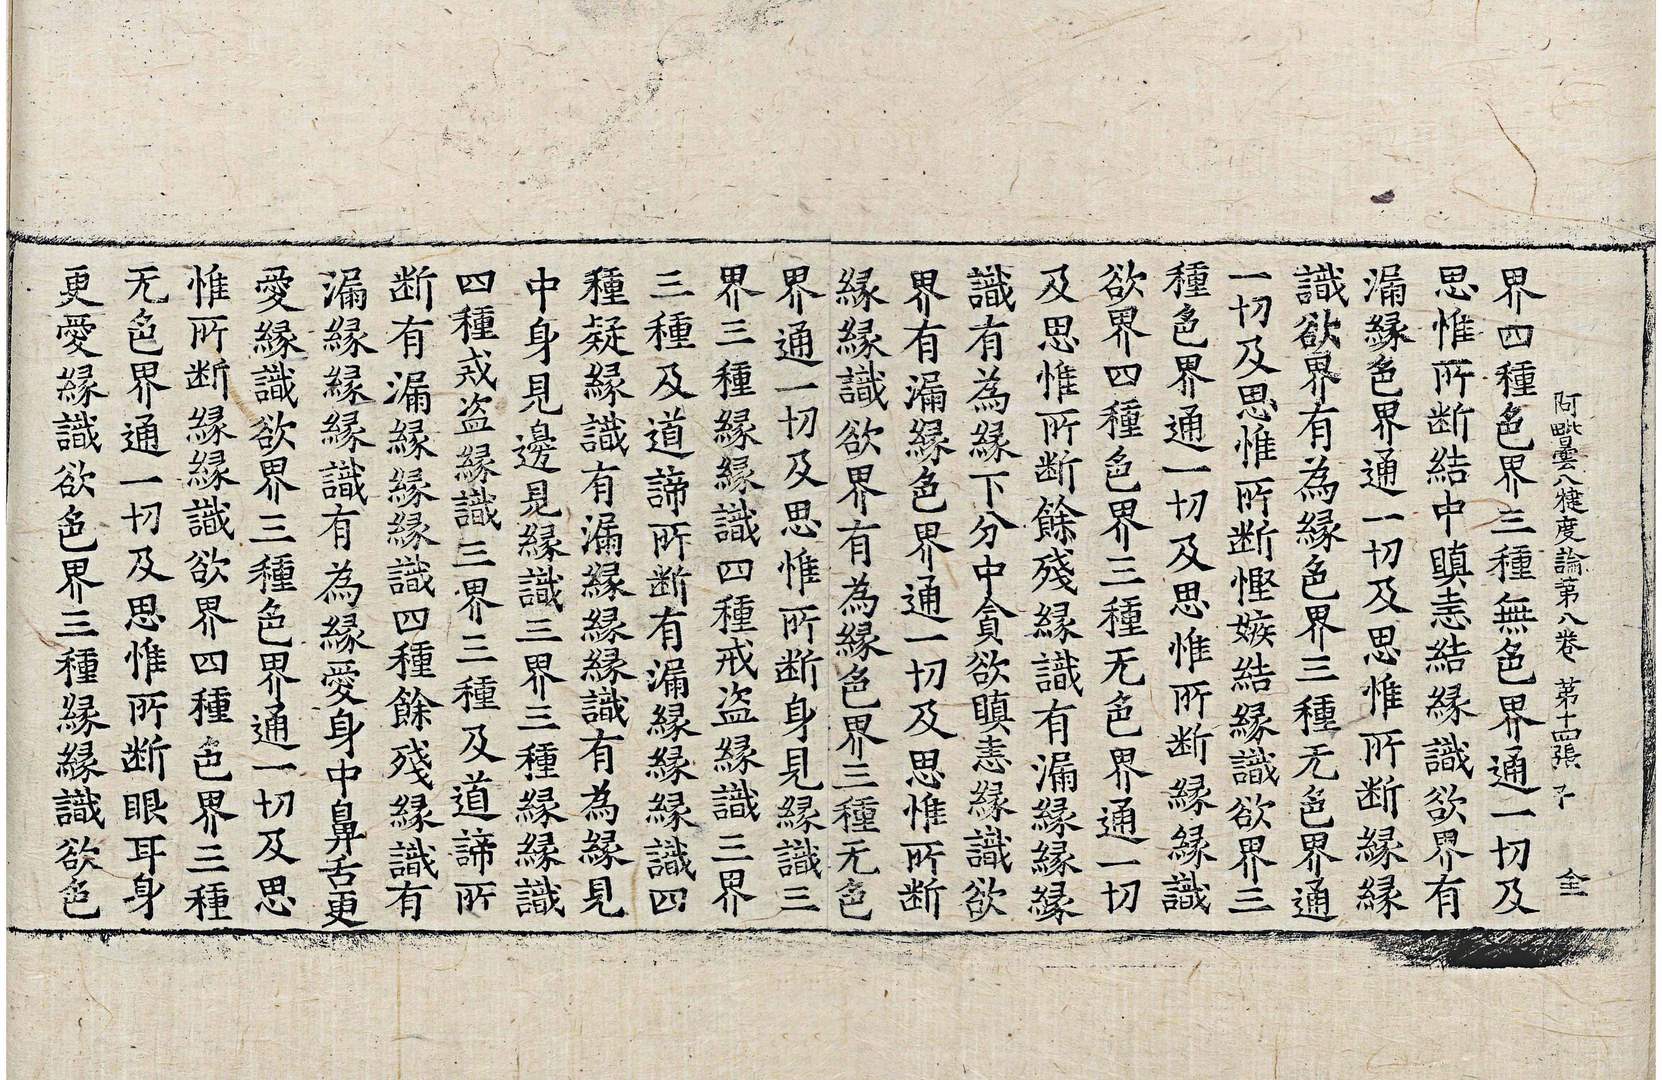 阿毗曇八犍度論第八卷 第十四張 不 全
界四種色界三種無色界通一切及
思惟所断結中瞋恚結縁識欲界有
漏縁色界通一切及思惟所断縁縁
識欲界有為縁色界三種无色界通
一切及思惟所断慳嫉結縁識欲界三
種色界通一切及思惟所断縁縁識
欲界四種色界三種无色界通一切
及思惟所断餘殘縁識有漏縁縁縁
識有為縁下分中貪欲瞋恚縁識欲
界有漏縁色界通一切及思惟所断
縁縁識欲界有為縁色界三種无色
界通一切及思惟所断身見縁識三
界三種縁縁識四種戒盗縁識三界
三種及道諦所断有漏縁縁縁識四
種疑縁識有漏縁縁縁識有為縁見
中身見邊見縁識三界三種縁縁識
四種戒盗縁識三界三種及道諦所
断有漏縁縁縁識四種餘殘縁識有
漏縁縁縁識有為縁愛身中鼻舌更
愛縁識欲界三種色界通一切及思
惟所断縁縁識欲界四種色界三種
无色界通一切及思惟所断眼耳身
更愛縁識欲色界三種縁縁識欲色